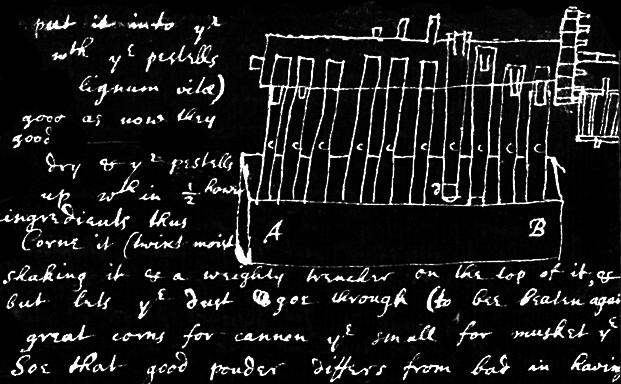 put it into yᵉ
wth yᵉ pestells
lignum vitæ)
good as now they
good
dry & yᵉ pestells
up wth in ½ howr
ingredients thus
Corne it (twixt moist
C C C C C C C C
D
A B
shaking it & a weighty trencher on the top of it, &
but lets yᵉ dust goe through (to bee beaten agai
great corns for cannon yᵉ small for musket yᵉ
Soe that good pouder differs from bad in having